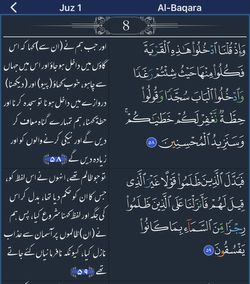 Juz 1
Al-Baqara
8
وَإِذْ قُلْنَا ٱدْخُلُوا۟ هَٰذِهِ ٱلْقَرْيَةَ
فَكُلُوا۟ مِنْهَا حَيْثُ شِئْتُمْ رَغَدًا
وَٱدْخُلُوا۟ ٱلْبَابَ سُجَّدًا وَقُولُوا۟
حِطَّةٌ نَّغْفِرْ لَكُمْ خَطَٰيَٰكُمْ ۚ
وَسَنَزِيدُ ٱلْمُحْسِنِينَ ٥٨
اور جب ہم نے (ان سے) کہا کہ اس
گاؤں میں داخل ہو جاؤ اور اس میں جہاں
سے چاہو، خوب کھاؤ (پیو) اور (دیکھنا)
دروازے میں داخل ہونا تو سجدہ کرنا اور
حطة کہنا، ہم تمہارے گناہ معاف کر
دیں گے اور نیکی کرنے والوں کو اور
زیادہ دیں گے ﴿۵۸﴾
فَبَدَّلَ ٱلَّذِينَ ظَلَمُوا۟ قَوْلًا غَيْرَ ٱلَّذِى
قِيلَ لَهُمْ فَأَنزَلْنَا عَلَى ٱلَّذِينَ ظَلَمُوا۟
رِجْزًا مِّنَ ٱلسَّمَآءِ بِمَا كَانُوا۟
يَفْسُقُونَ ٥٩
تو جو ظالم تھے، انہوں نے اس لفظ کو،
جس کا ان کو حکم دیا تھا، بدل کر اس
کی جگہ اور لفظ کہنا شروع کیا، پس ہم
نے (ان) ظالموں پر آسمان سے عذاب
نازل کیا، کیونکہ نافرمانیاں کئے جاتے
تھے ﴿۵۹﴾